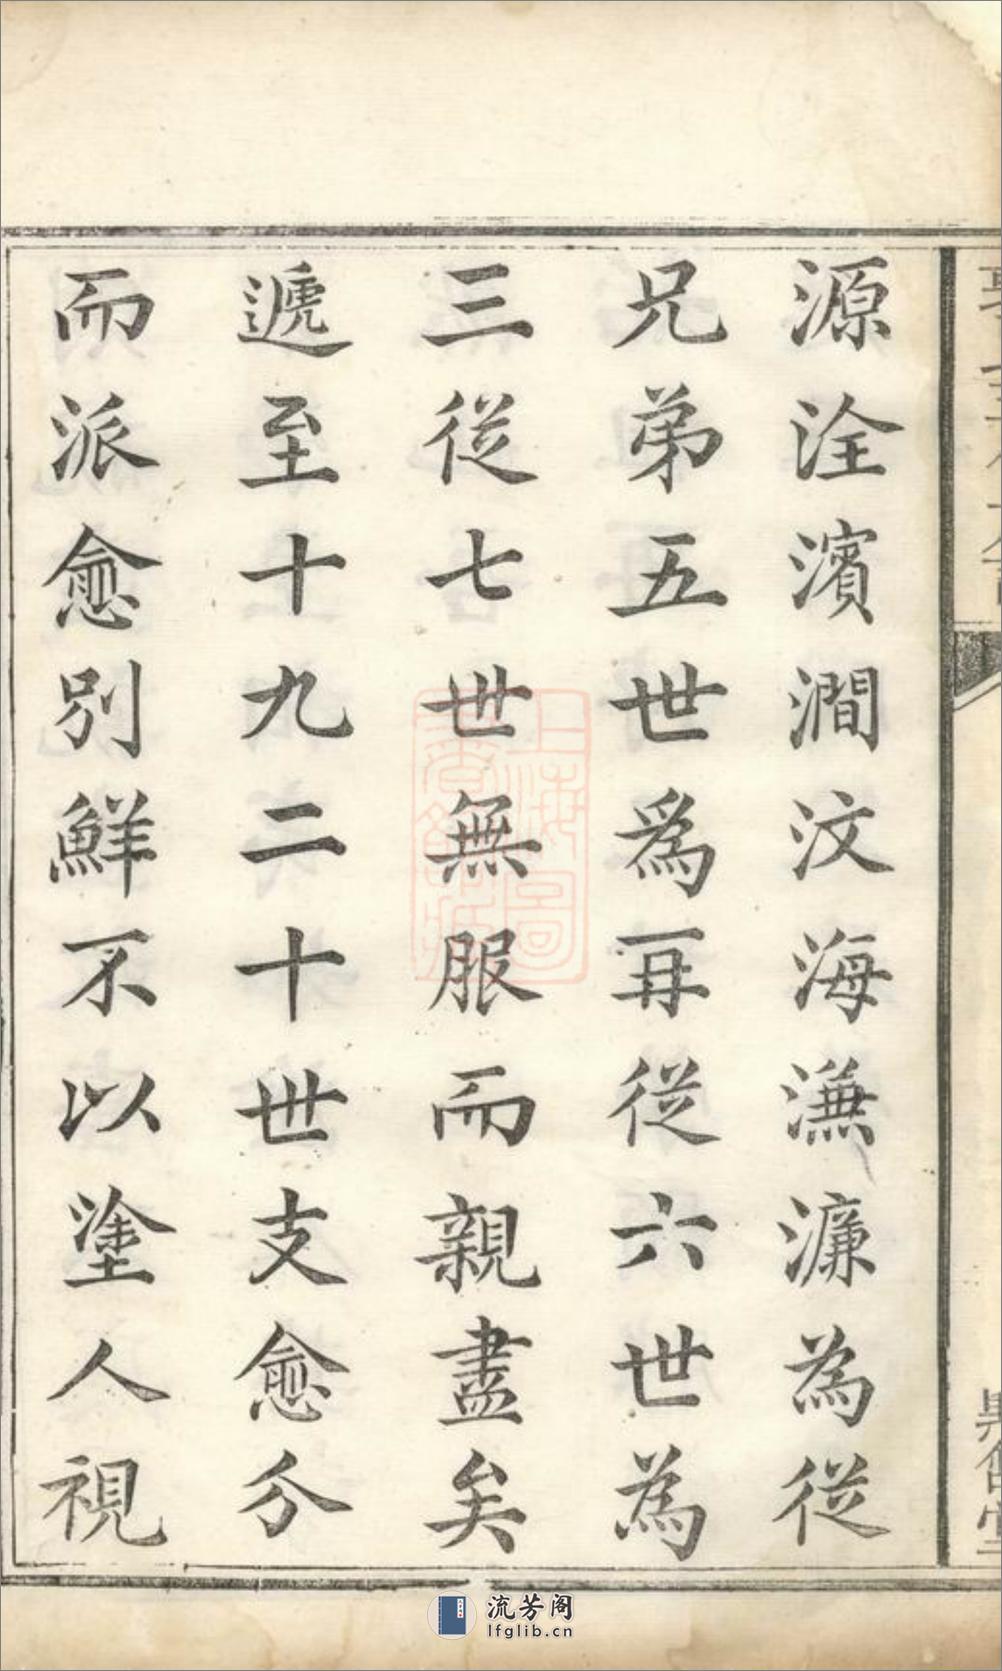 源洤濱澗汶海濂濓為從
兄弟五世爲再從六世為
三從七世無服而親盡矣
遞至十九二十世支愈分
而派愈別鮮不以塗人視
上海圖
書館藏
流芳阁
lfglib.cn